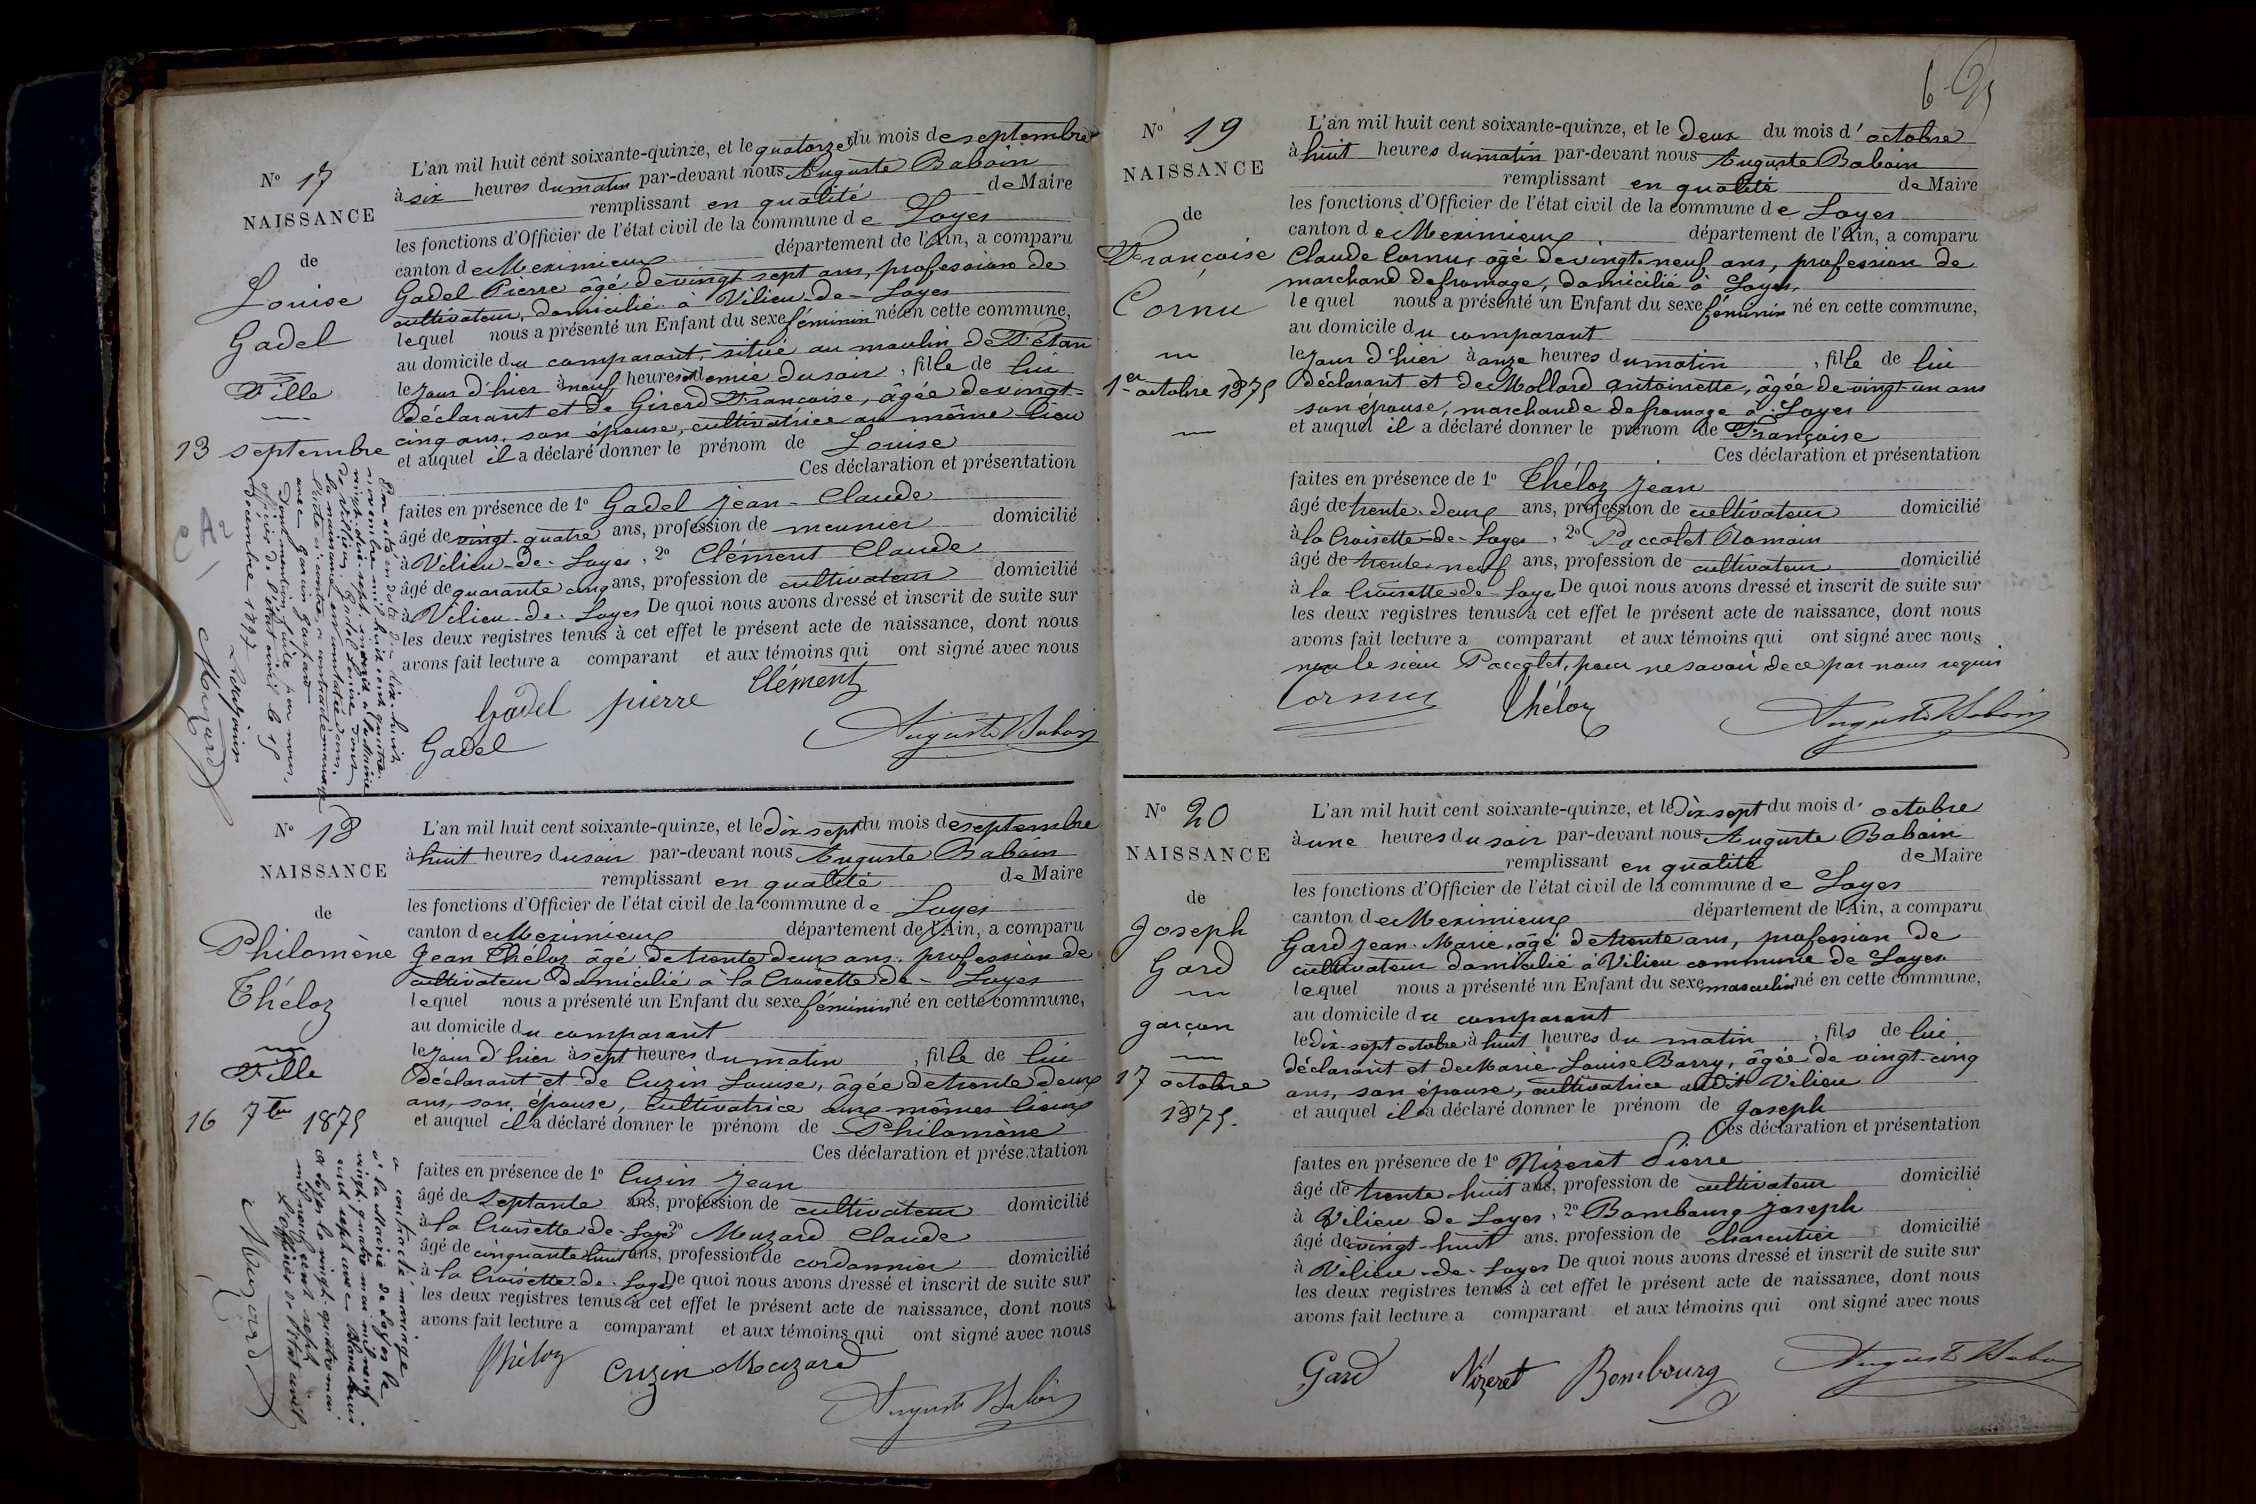 N° 17
NAISSANCE
de
Louise
Gadel
Fille
13 septembre
L'an mil huit cent soixante-quinze, et le quatorze du mois de septembre
à six heures du matin par-devant nous Auguste Baboin
remplissant en qualité de Maire
les fonctions d'Officier de l'état civil de la commune de Loyes
canton de Meximieux département de l'Ain, a comparu
Gadel Pierre âgé de vingt sept ans, profession de
cultivateur, domicilié à Vilieu-de-Loyes
lequel nous a présenté un Enfant du sexe féminin né en cette commune,
au domicile du comparant, situé au moulin de
le jour d'hier à neuf heures et demie du soir, fille de lui
déclarant et de Girerd Françoise, âgée de vingt-
cinq ans, son épouse, cultivatrice au même lieu
et auquel il a déclaré donner le prénom de Louise
Ces déclaration et présentation
faites en présence de 1° Gadel Jean-Claude
âgé de vingt-quatre ans, profession de meunier domicilié
à Vilieu-de-Loyes, 2° Clément Claude
âgé de quarante cinq ans, profession de cultivateur domicilié
à Vilieu-de-Loyes De quoi nous avons dressé et inscrit de suite sur
les deux registres tenus à cet effet le présent acte de naissance, dont nous
avons fait lecture a comparant et aux témoins qui ont signé avec nous
Gadel pierre Clément
Gadel Auguste Baboin
N° 18
NAISSANCE
de
Philomène
Théloz
Fille
16 7bre 1875
a contracté mariage
à la Mairie de Loyes le
vingt-quatre mai mil neuf
cent sept avec Blanc Louis
Loyes le vingt-quatre mai
mil neuf cent sept
L'officier de l'état civil
Muzard
L'an mil huit cent soixante-quinze, et le dix sept du mois de septembre
à huit heures du soir par-devant nous Auguste Baboin
remplissant en qualité de Maire
les fonctions d'Officier de l'état civil de la commune de Loyes
canton de Meximieux département de l'Ain, a comparu
Jean Théloz âgé de trente deux ans, profession de
cultivateur domicilié à la Croisette de-Loyes
lequel nous a présenté un Enfant du sexe féminin né en cette commune,
au domicile du comparant
le jour d'hier à sept heures du matin, fille de lui
déclarant et de Cuzin Louise, âgée de trente deux
ans, son épouse, cultivatrice aux mêmes lieux
et auquel il a déclaré donner le prénom de Philomène
Ces déclaration et présentation
faites en présence de 1° Cuzin Jean
âgé de septante ans, profession de cultivateur domicilié
à la Croisette-de-Loyes 2° Muzard Claude
âgé de cinquante huit ans, profession de cordonnier domicilié
à la Croisette-de-Loyes De quoi nous avons dressé et inscrit de suite sur
les deux registres tenus à cet effet le présent acte de naissance, dont nous
avons fait lecture a comparant et aux témoins qui ont signé avec nous
Théloz Cuzin Muzard
Auguste Baboin
N° 19
NAISSANCE
de
Françoise
Cornu
1er octobre 1875
L'an mil huit cent soixante-quinze, et le deux du mois d'octobre
à huit heures du matin par-devant nous Auguste Baboin
remplissant en qualité de Maire
les fonctions d'Officier de l'état civil de la commune de Loyes
canton de Meximieux département de l'Ain, a comparu
Claude Cornu, âgé de vingt-neuf ans, profession de
marchand de fromage, domicilié à Loyes,
lequel nous a présenté un Enfant du sexe féminin né en cette commune,
au domicile du comparant
le jour d'hier à onze heures du matin, fille de lui
déclarant et de Mollard Antoinette, âgée de vingt-un ans
son épouse, marchande de fromage à Loyes
et auquel il a déclaré donner le prénom de Françoise
Ces déclaration et présentation
faites en présence de 1° Théloz Jean
âgé de trente-deux ans, profession de cultivateur domicilié
à la Croisette-de-Loyes, 2° Paccolet Romain
âgé de trente-neuf ans, profession de cultivateur domicilié
à la Croisette de-Loyes De quoi nous avons dressé et inscrit de suite sur
les deux registres tenus à cet effet le présent acte de naissance, dont nous
avons fait lecture a comparant et aux témoins qui ont signé avec nous
non le sieur Paccolet, pour ne savoir de ce par nous requis
Cornu Théloz Auguste Baboin
N° 20
NAISSANCE
de
Joseph
Gard
garçon
17 octobre
1875.
L'an mil huit cent soixante-quinze, et le dix-sept du mois d'octobre
à une heures du soir par-devant nous Auguste Baboin
remplissant en qualité de Maire
les fonctions d'Officier de l'état civil de la commune de Loyes
canton de Meximieux département de l'Ain, a comparu
Gard Jean-Marie, âgé de trente ans, profession de
cultivateur domicilié à Vilieu commune de Loyes
lequel nous a présenté un Enfant du sexe masculin né en cette commune,
au domicile du comparant
le dix-sept octobre à huit heures du matin, fils de lui
déclarant et de Marie-Louise Barry, âgée de vingt-cinq
ans, son épouse, cultivatrice audit Vilieu
et auquel il a déclaré donner le prénom de Joseph
Ces déclaration et présentation
faites en présence de 1° Nizeret Pierre
âgé de trente-huit ans, profession de cultivateur domicilié
à Vilieu de Loyes, 2° Bombourg Joseph
âgé de vingt-huit ans, profession de charentier domicilié
à Vilieu-de-Loyes De quoi nous avons dressé et inscrit de suite sur
les deux registres tenus à cet effet le présent acte de naissance, dont nous
avons fait lecture a comparant et aux témoins qui ont signé avec nous
Gard Nizeret Bombourg Auguste Baboin